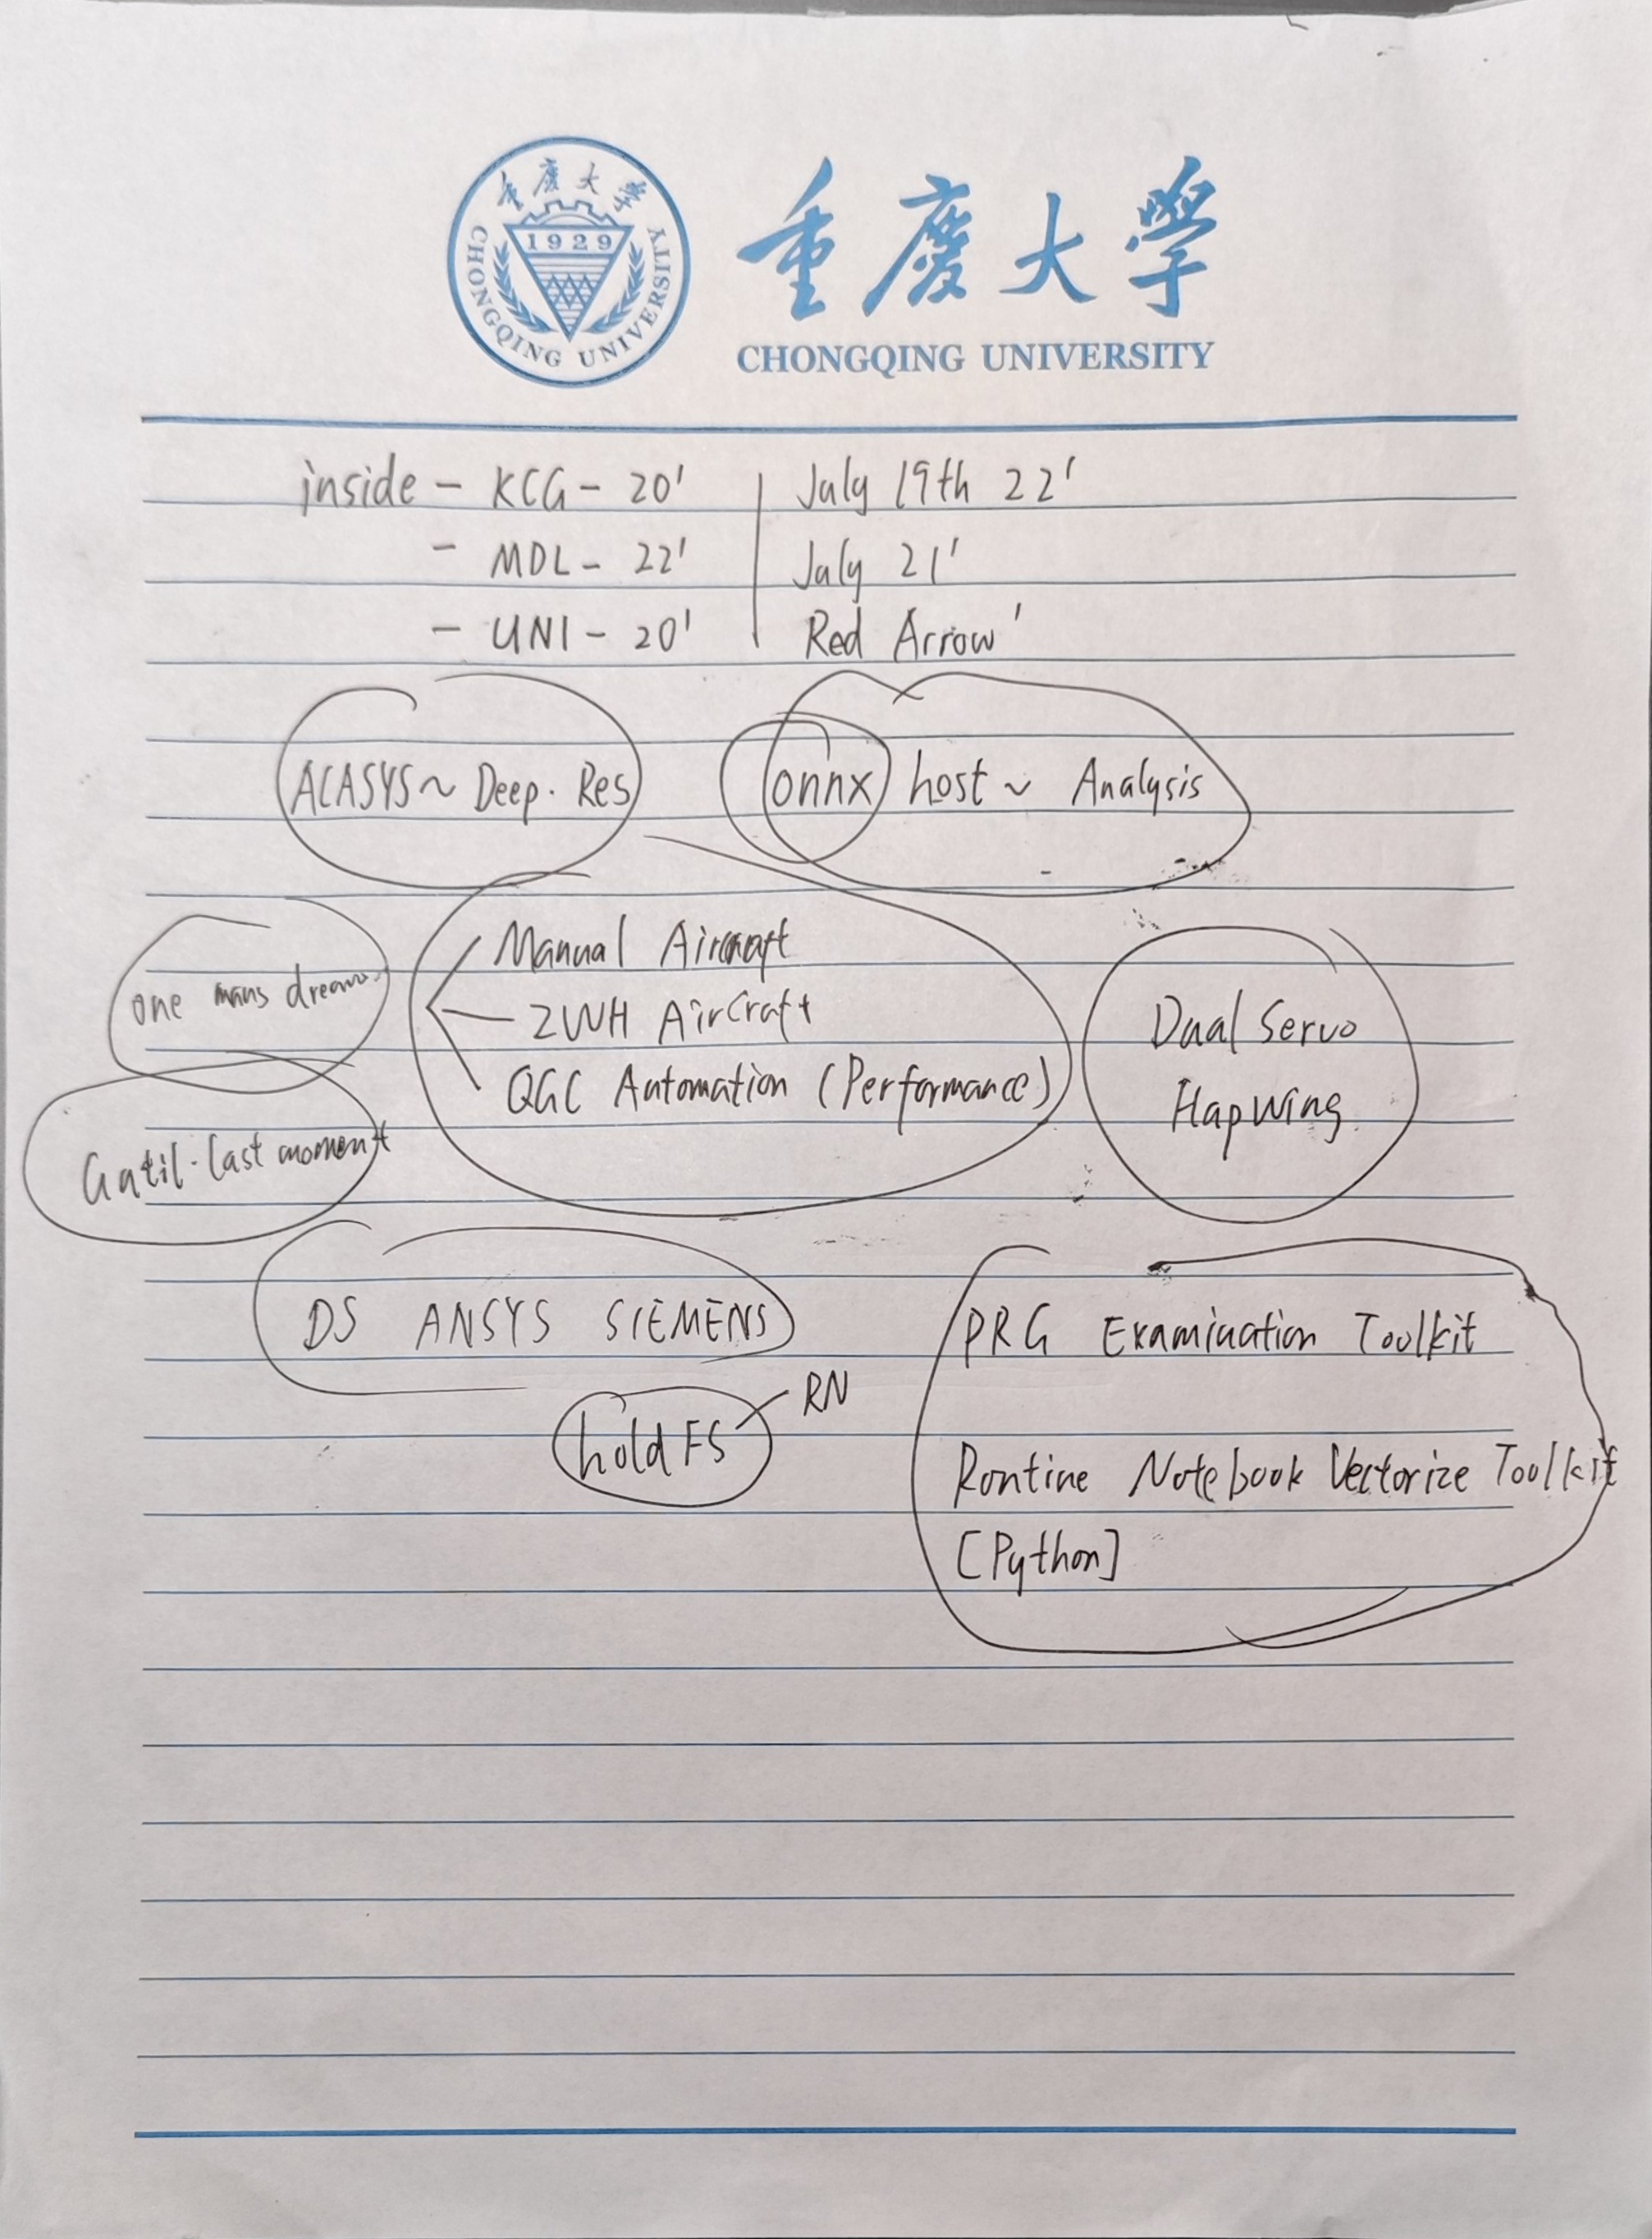 重慶大學
1929
CHONGQING UNIVERSITY
重慶大學
CHONGQING UNIVERSITY
inside - KCG - 20' | July 19th 22'
- MDL - 22' | July 21'
- UNI - 20' | Red Arrow'
ACASYS ~ Deep. Res
onnx host ~ Analysis
Manual Aircraft
ZWH AirCraft
QGC Automation (Performance)
one mans dream
Gatil. last moment
Dual Servo
Flapwing
DS ANSYS SIEMENS
hold FS
RN
PRG Examination Toolkit
Rontine Notebook Vectorize Toolkit
[Python]